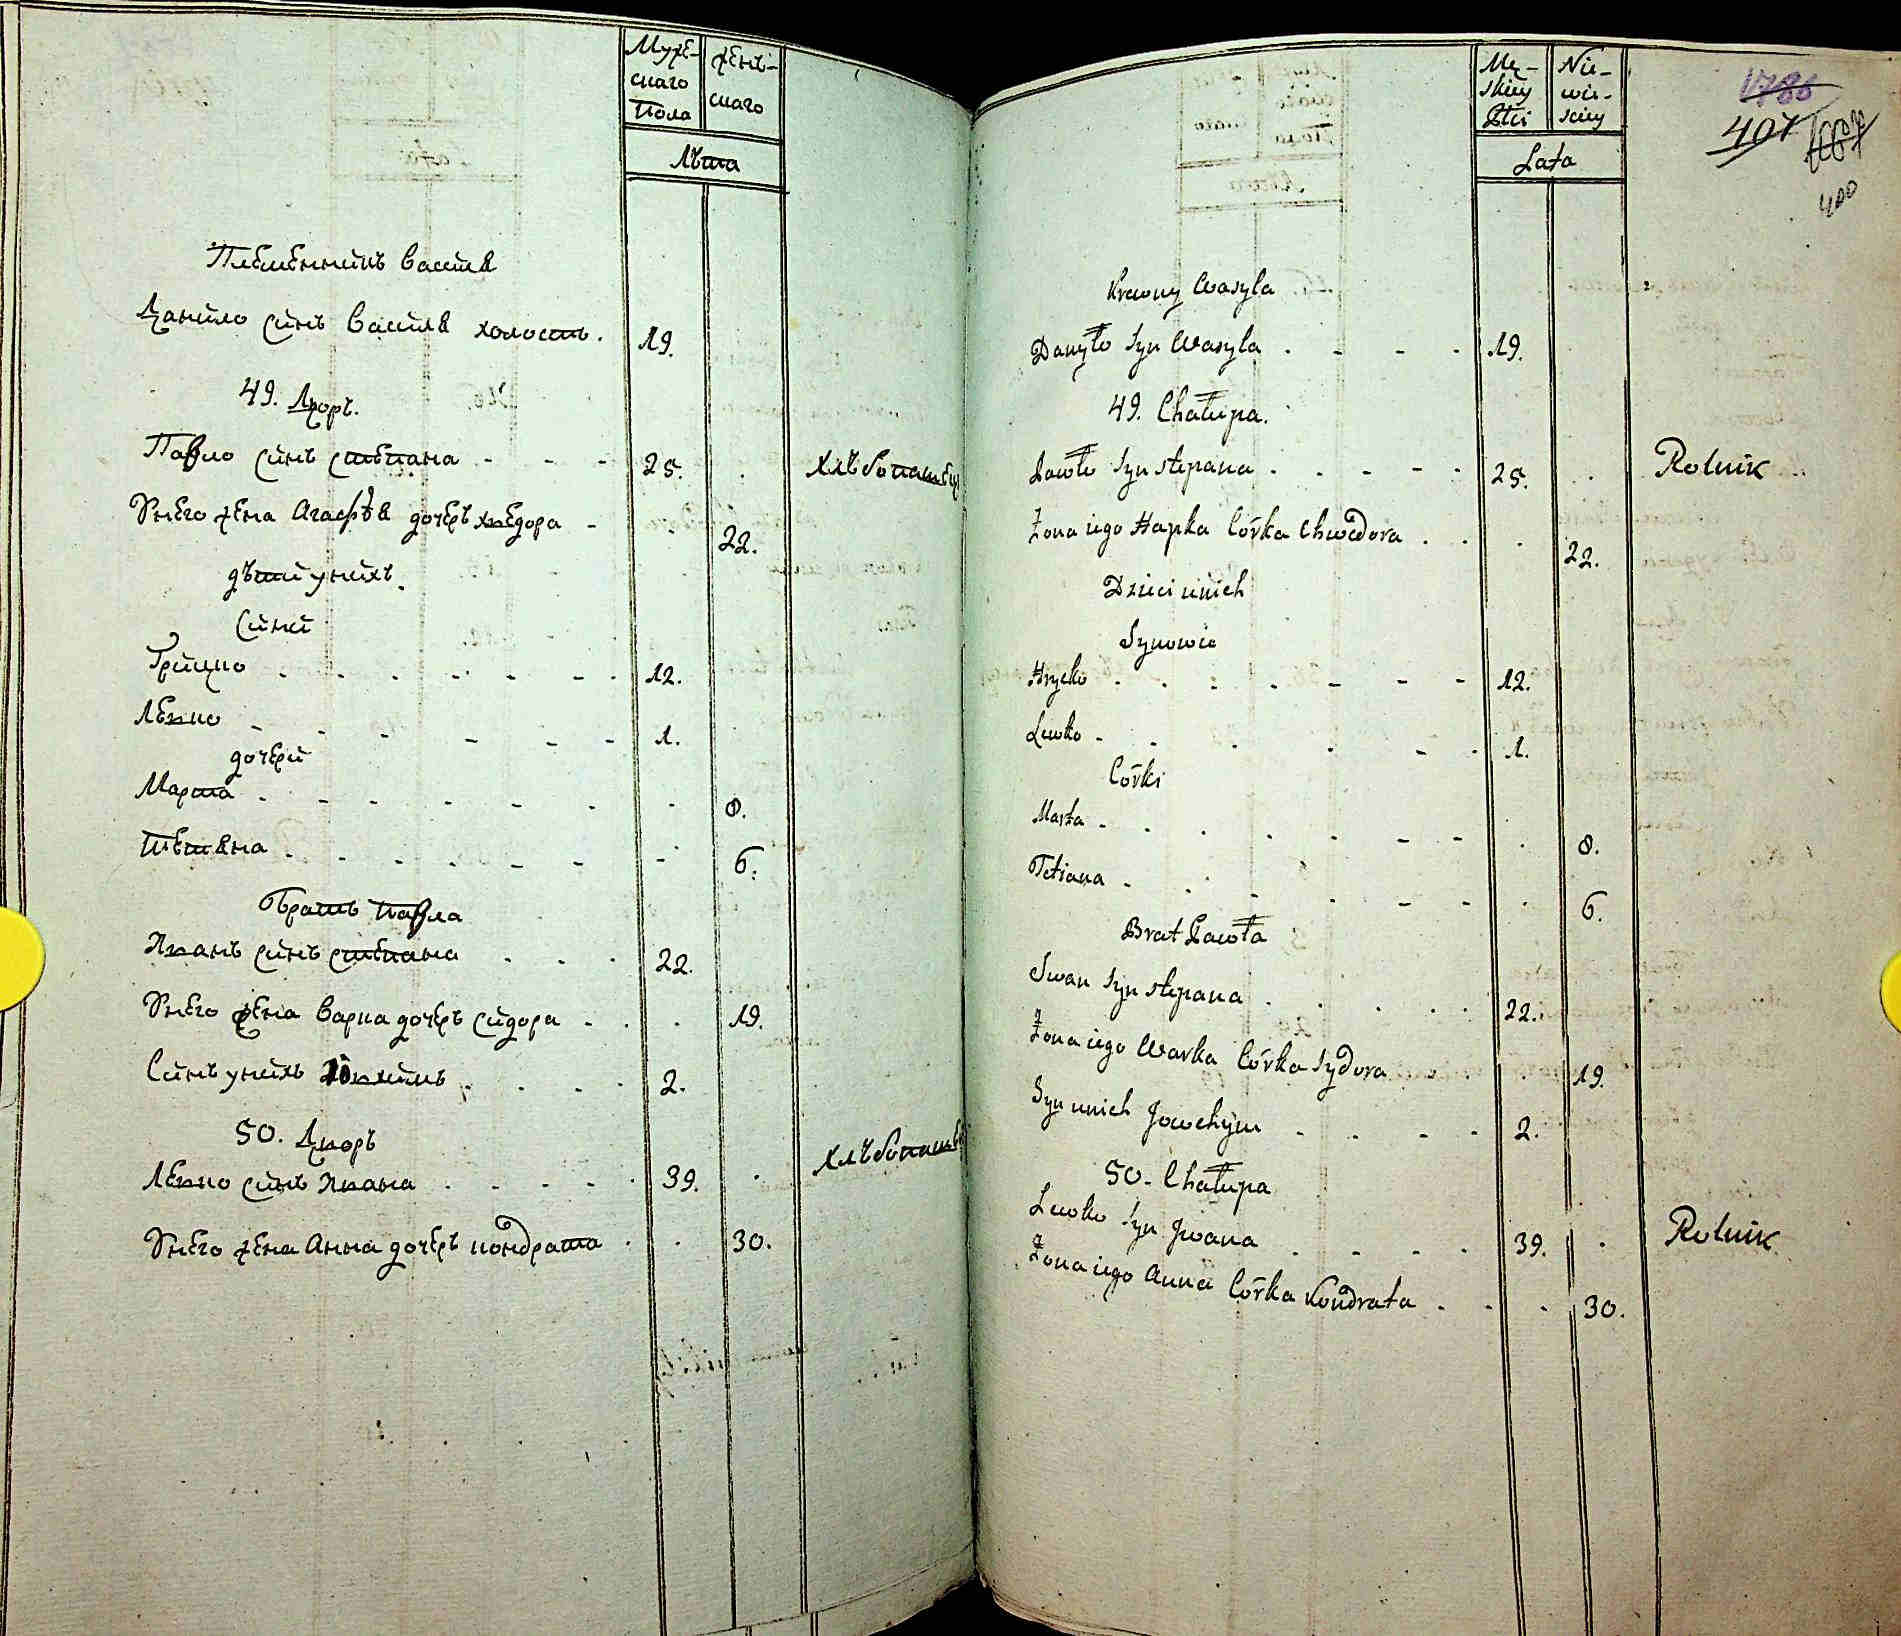 Муже-
скаго
Пола
женъ-
скаго
Лѣта
Племенникъ Василя
Данило синъ Василя холостъ. 19.
49. Дворъ.
Павло синъ Степана - - - 25. . Хлѣбопашецъ
У него жена Агафѣя дочеръ Хведора - 22.
дѣти у нихъ.
Сини
Грицко . . . . . . . 12.
Левко - - - - - - 1.
дочери
Марта . - - - - - - 8.
Тетяна . - - - - - - 6.
Братъ Павла
Иванъ синъ Степана . . . 22.
У него жена Варка дочеръ Сидора - . . 19.
Синъ у нихъ Ювхимъ . . . . 2.
50. Дворъ
Левко синъ Ивана . . . . . 39. . Хлѣбопаше
У него жена Анна дочеръ Кондрата . . 30.
Mę-
skiey
Płci
Nie-
wie-
sciey
Lata
1786
407
400
Krewny Wasyla
Danyło Syn Wasyla . - - - 19.
49. Chałupa.
Pawło Syn Stepana . . . - . 25. . . Rolnik
Żona iego Hapka Córka Chwedora . . . 22.
Dzieci u nich
Synowie
Hrycko . . . . - - - 12.
Lewko - . . . - . 1.
Córki
Marta - . . . . - - . 8.
Tetiana - . . . . - - . 6.
Brat Pawła
Iwan Syn Stepana . . . . . 22.
Żona iego Warka Córka Sydora . . . 19.
Syn u nich Jowchym . . . . 2.
50. Chałupa
Lewko Syn Jwana . . . . 39. . Rolnik
Żona iego Anna Córka Kondrata . . . 30.